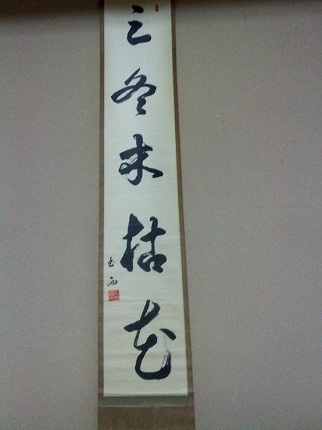 三冬末枯花